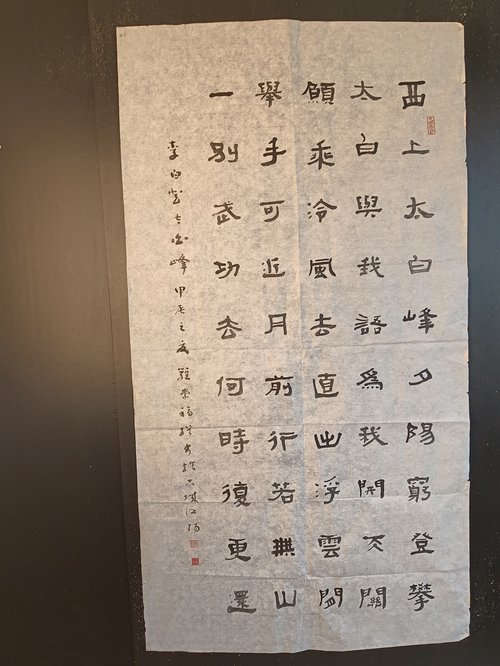 西上太白峰夕陽窮登攀
太白與我語為我開天關
願乘冷風去直出浮雲間
舉手可近月前行若無山
一別武功去何時復更還
李白登太白峰 甲辰之夏